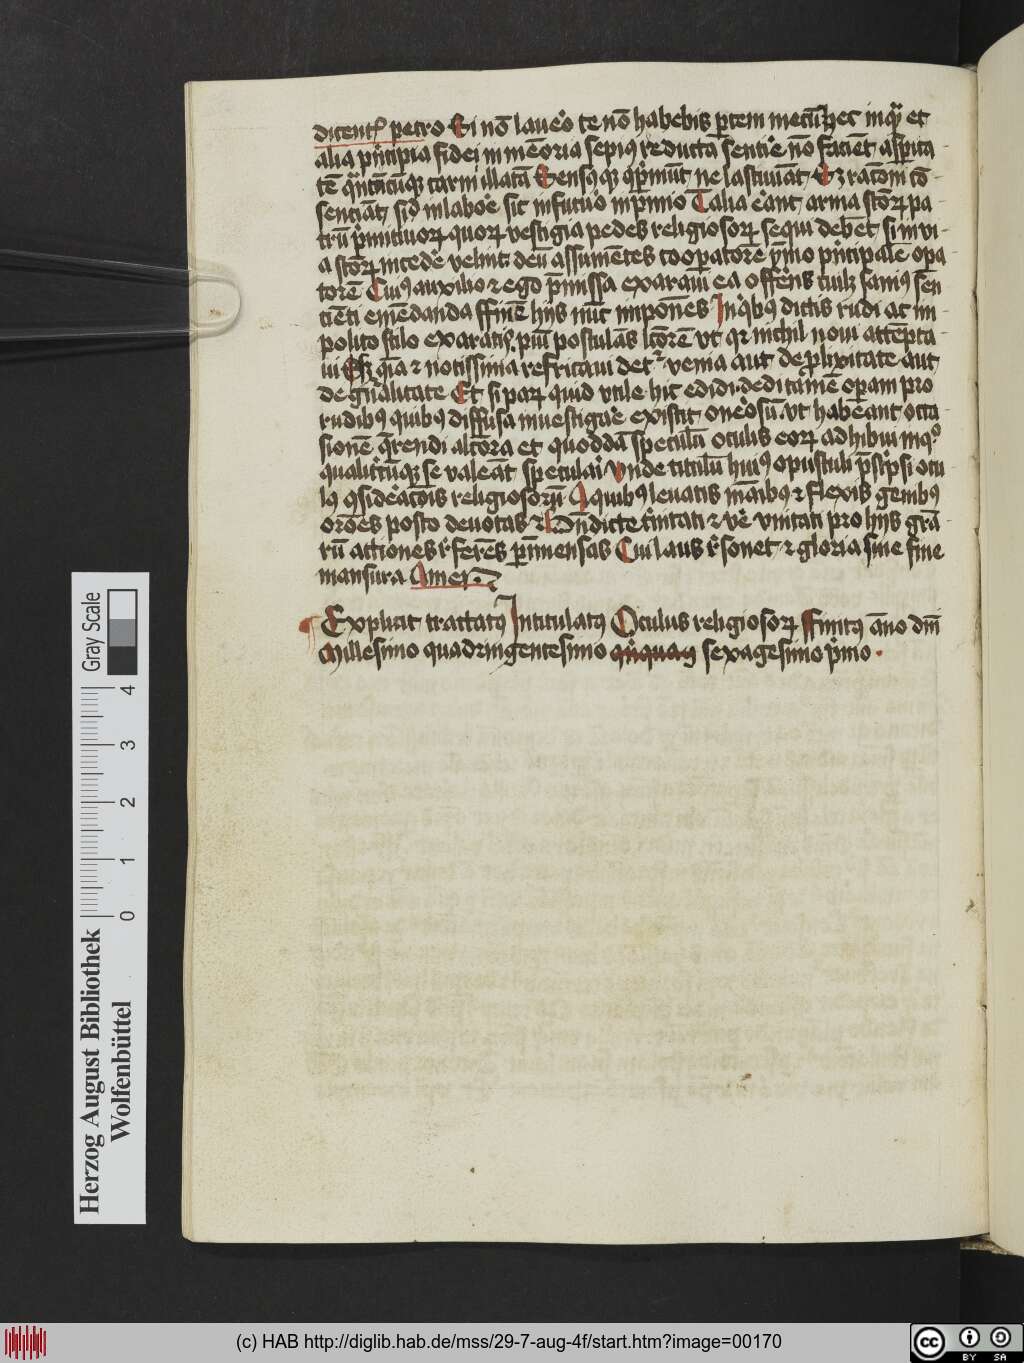 dicente petro Si nō lauero te nō habebis ptem mecū hec inq̄ et
alia pncipia fidei in mēoria sepius reducta sentire nō faciēt aspita
tē
sentiāt, sic in labore sic in futuro in pmio Talia erant arma stor pa
trū pmitiuor quor vestigia pedes religiosor sequi debēt si in vi
a stor incede velint deū assumētes cooperatorē pmo pncipalē opa
torē Cuius auxilio ⁊ ego pmissa exaraui ea offerēs cuilz sanius sen
tienti emēdanda ffinē hijs nūc imponēs In qbus dictis rudi ac im
polito stilo exaratis piū postulās lectorē vt qz nichil noui attēpta
ui Sz qia ⁊ notissima refricaui det venia aut de plixitate aut
de gnalitate Et si par quid vtile hic edidi dedi tamē opam pro
rudibus quibus diffusa inuestigare existit onerosū vt habeant occa
sionē qrendi alciora et quoddā speculū oculis eor adhibui in q°
qualitcūqz se valeāt speculari Vnde titulū huius opusculi pscripsi ocu
lus ɔsideracōis religiosorū A quibus leuatis manibus ⁊ flexis genibus
orōes posco deuotas ⁊ Bndicte trinitati ⁊ vere vnitati pro hijs gra
rū actiones referēs pimmensas Cui laus resonet ⁊ gloria sine fine
mansura Amen
Explicit tractatus Intitulatus Oculus religiosor ffinitus āno dni
Millesimo quadringentesimo sexagesimo pmo
Herzog August Bibliothek
Wolfenbüttel
0 1 2 3 4
Gray Scale
(c) HAB http://diglib.hab.de/mss/29-7-aug-4f/start.htm?image=00170
cc BY SA